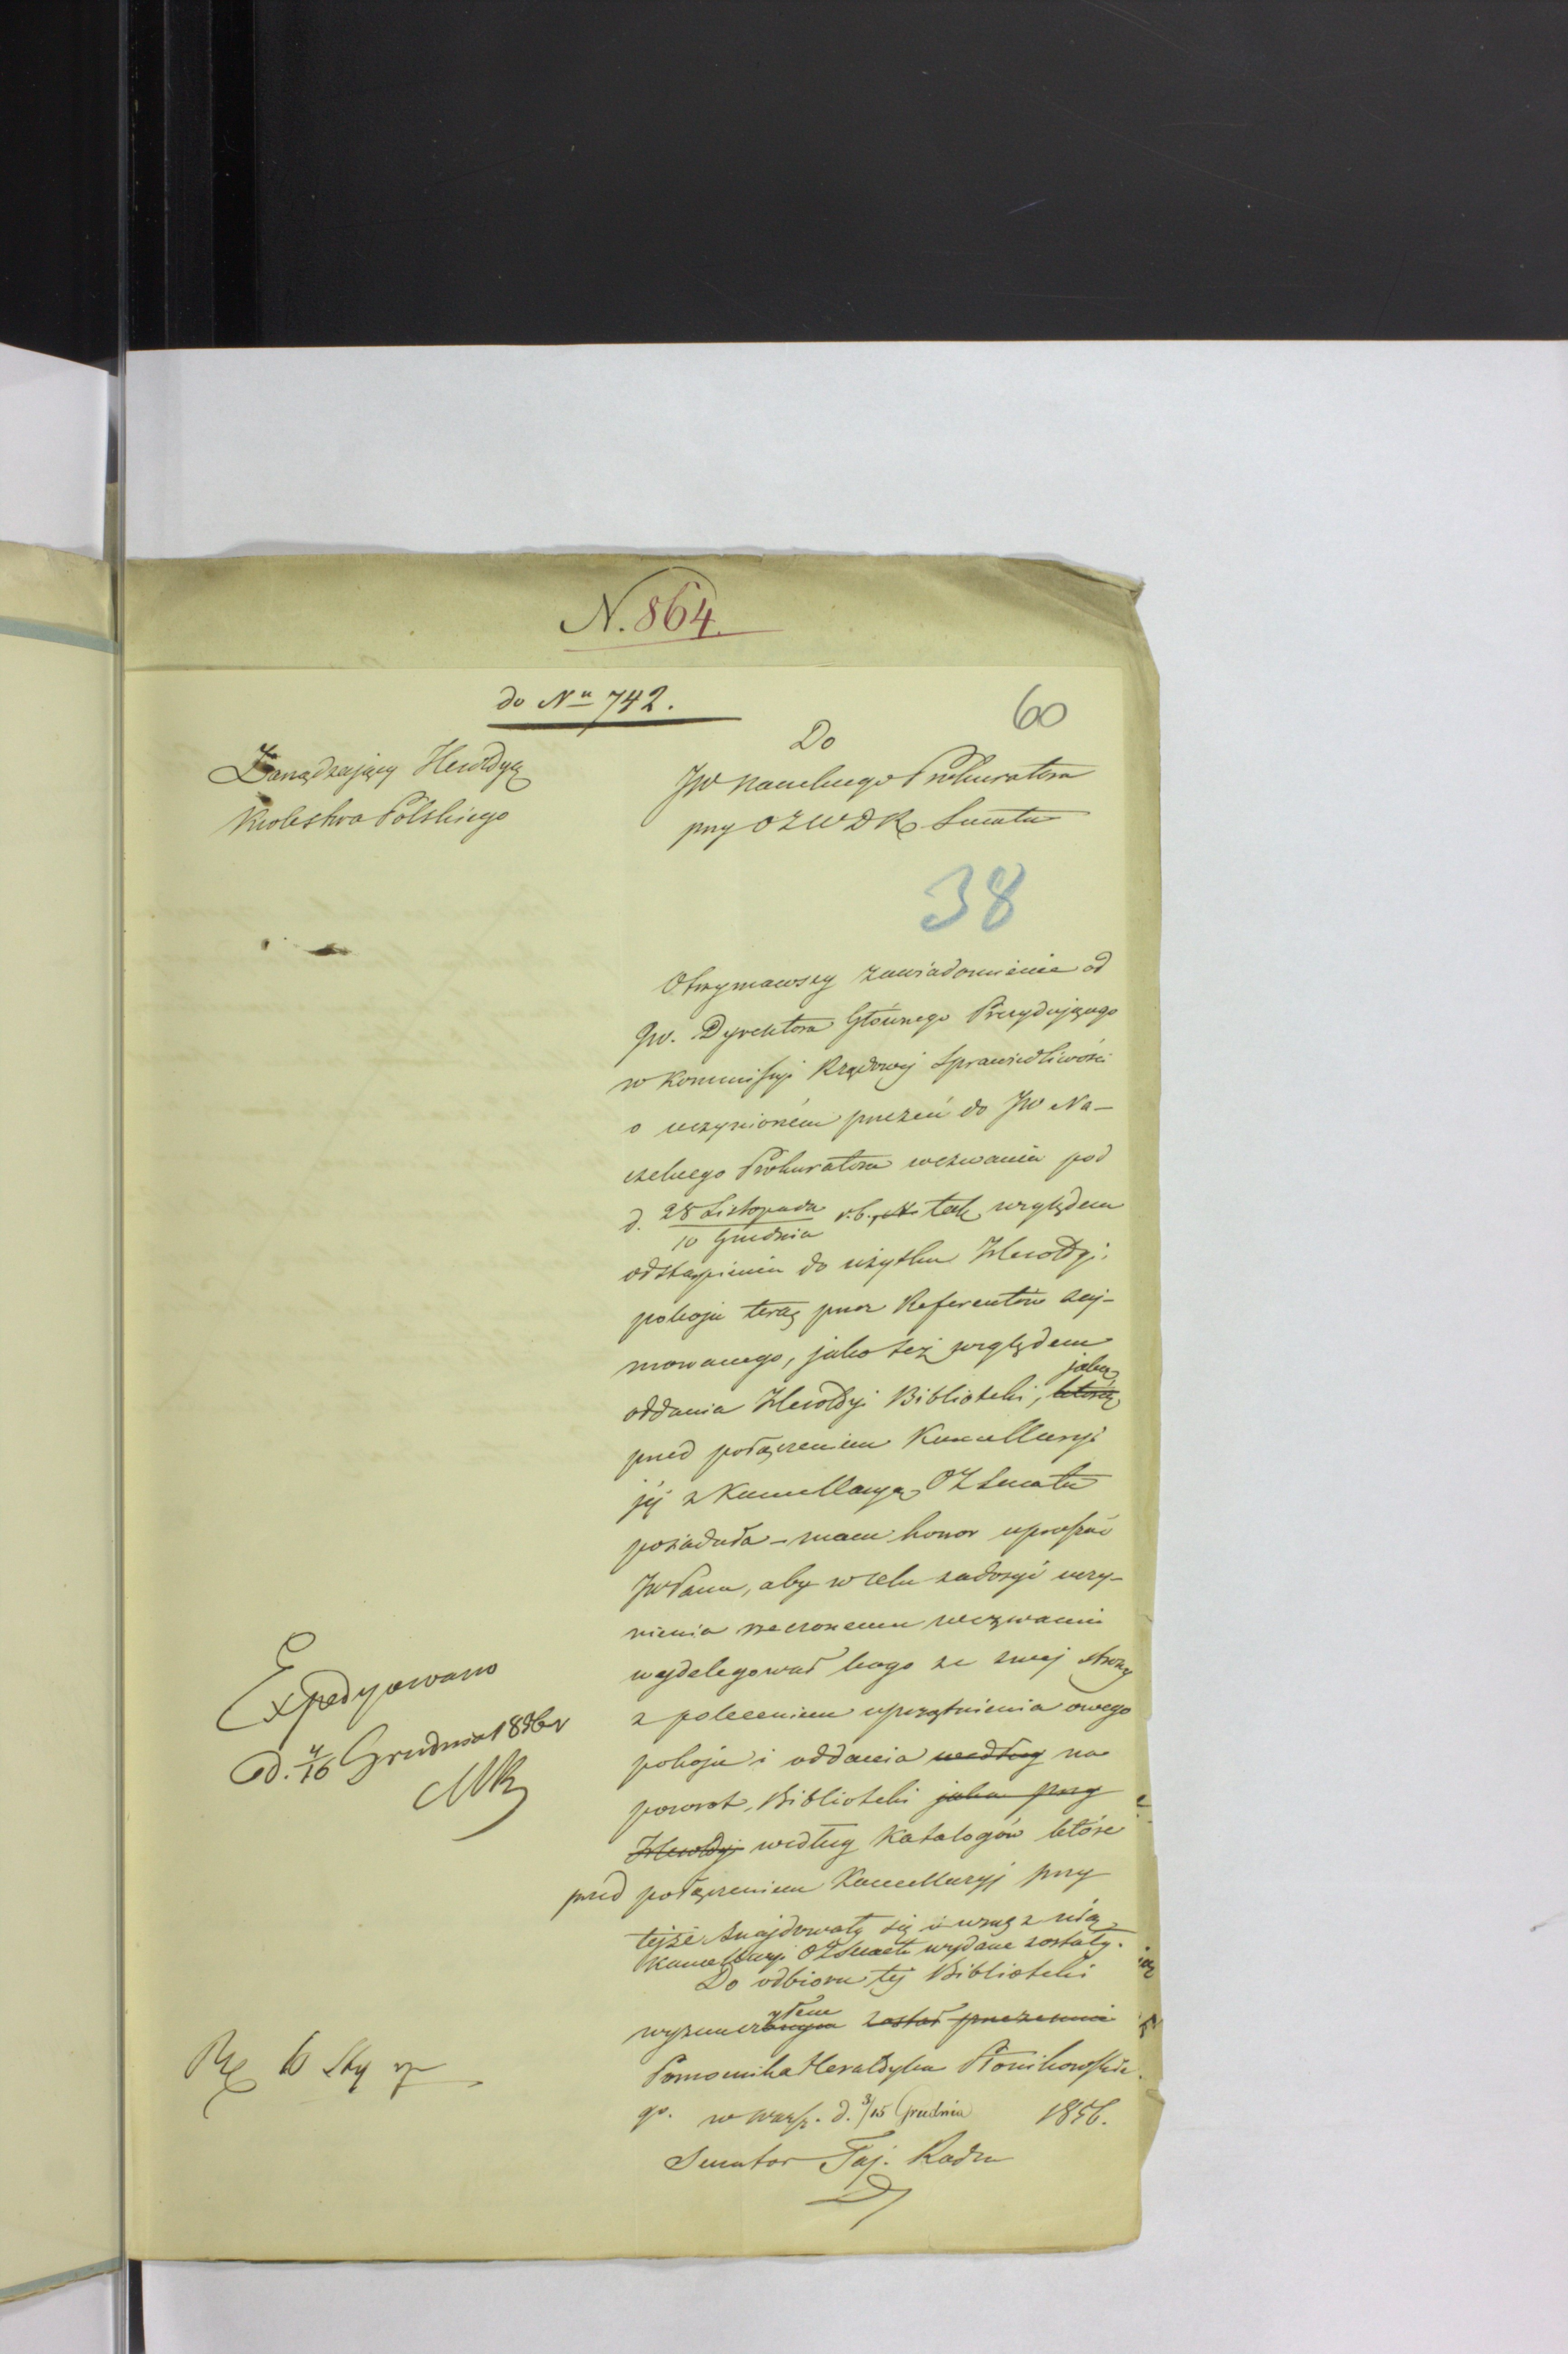 N. 864.
do Nu 742.
60
Zarządzający Heroldyą
Królestwa Polskiego
Do
JW Naczelnego Prokuratora
przy OZWDR Senatu
38
Otrzymawszy zawiadomienie od
JW. Dyrektora Głównego Prezydującego
w Kommissyi Rządowej Sprawiedliwości
o uczynioném przezeń do JW Na-
czelnego Prokuratora wezwaniu pod
d. 28 Listopada / 10 Grudnia r.b., tak względem
odstąpienia do użytku Heroldyi
pokoju teraz przez Referentów zaj-
mowanego, jako też względem
oddania Heroldyi Biblioteki, którą jaką
przed połączeniem Kancellaryi
jéj z Kancellaryą OZ Senatu
posiadała – mam honor uprosić
JWPana, aby w celu zadosyć uczy-
nienia rzeczonemu wezwaniu
wydelegował kogo ze swej strony
z poleceniem uprzątnienia owego
pokoju i oddania według na
powrót, Biblioteki jaka przy
Heroldyi według Katalogów które
przed połączeniem Kancellaryj przy
tejże znajdowały się i wraz z nią
Kancellaryi OZ Senatu wydane zostały.
Do odbioru tej Biblioteki
wyznaczonym yłem został przezemnie
Pomocnika Heraldyka Słonikowskie
go. w Warsz. d. 3/15 Grudnia 1856.
Senator Taj. Radca
Expedyowano
d. 4/16 Grudnia 1856 r